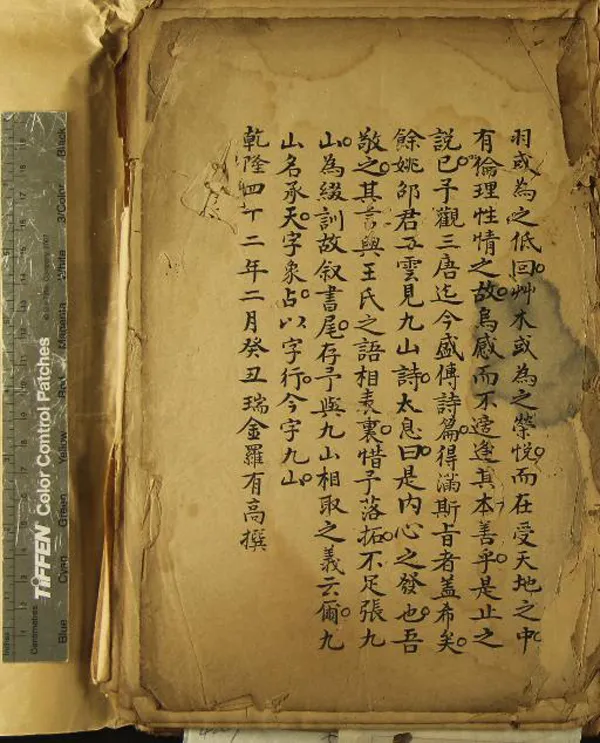 羽或為之低回。艸木或為之榮悅。而在受天地之中。
有倫理性情之故。烏感而不遄逢其本善乎。是止之
說已。予觀三唐迄今盛傳詩篇。得滿斯旨者蓋希矣。
餘姚邵君五雲見九山詩。太息曰。是內心之發也。吾
敬之。其言與王氏之語相表裏。惜予落拓。不足張九
山。為綴訓故叙書尾。存予與九山相取之義云爾。九
山名承天。字象占。以字行。今字九山。
乾隆四十二年二月癸丑瑞金羅有高撰
TIFFEN Color Control Patches
Blue Cyan Green Yellow Red Magenta White 3/Color Black
Inches
Centimetres